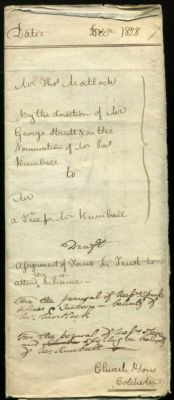 Dated Decr 1828
Mr Thos Matlock
by the direction of Mr
George Strutt & on the
Nomination of Mr Jas
Rumball
to
Mr
a Tree for Mr Rumball
Draft
Assignment of Terms In Trust to
attend Inhance
For the perusal of Messrs
Mr Matlock
For the perusal of Messrs
and on behalf
of Mr Rumball
Church & Sons
Colchester